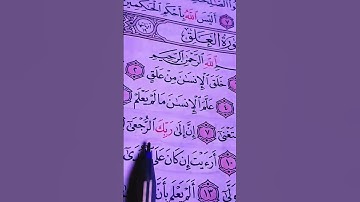 أَلَيْسَ ٱللَّهُ بِأَحْكَمِ ٱلْحَٰكِمِينَ
سُورَةُ ٱلْعَلَقِ
ٱللَّهِ ٱلرَّحْمَٰنِ ٱلرَّحِيمِ
خَلَقَ ٱلْإِنسَٰنَ مِنْ عَلَقٍ ٢
٤ عَلَّمَ ٱلْإِنسَٰنَ مَا لَمْ يَعْلَمْ
٧ إِنَّ إِلَىٰ رَبِّكَ ٱلرُّجْعَىٰٓ
١٠ أَرَءَيْتَ إِن كَانَ عَلَى
١٣ أَلَمْ يَعْلَم بِأَنَّ